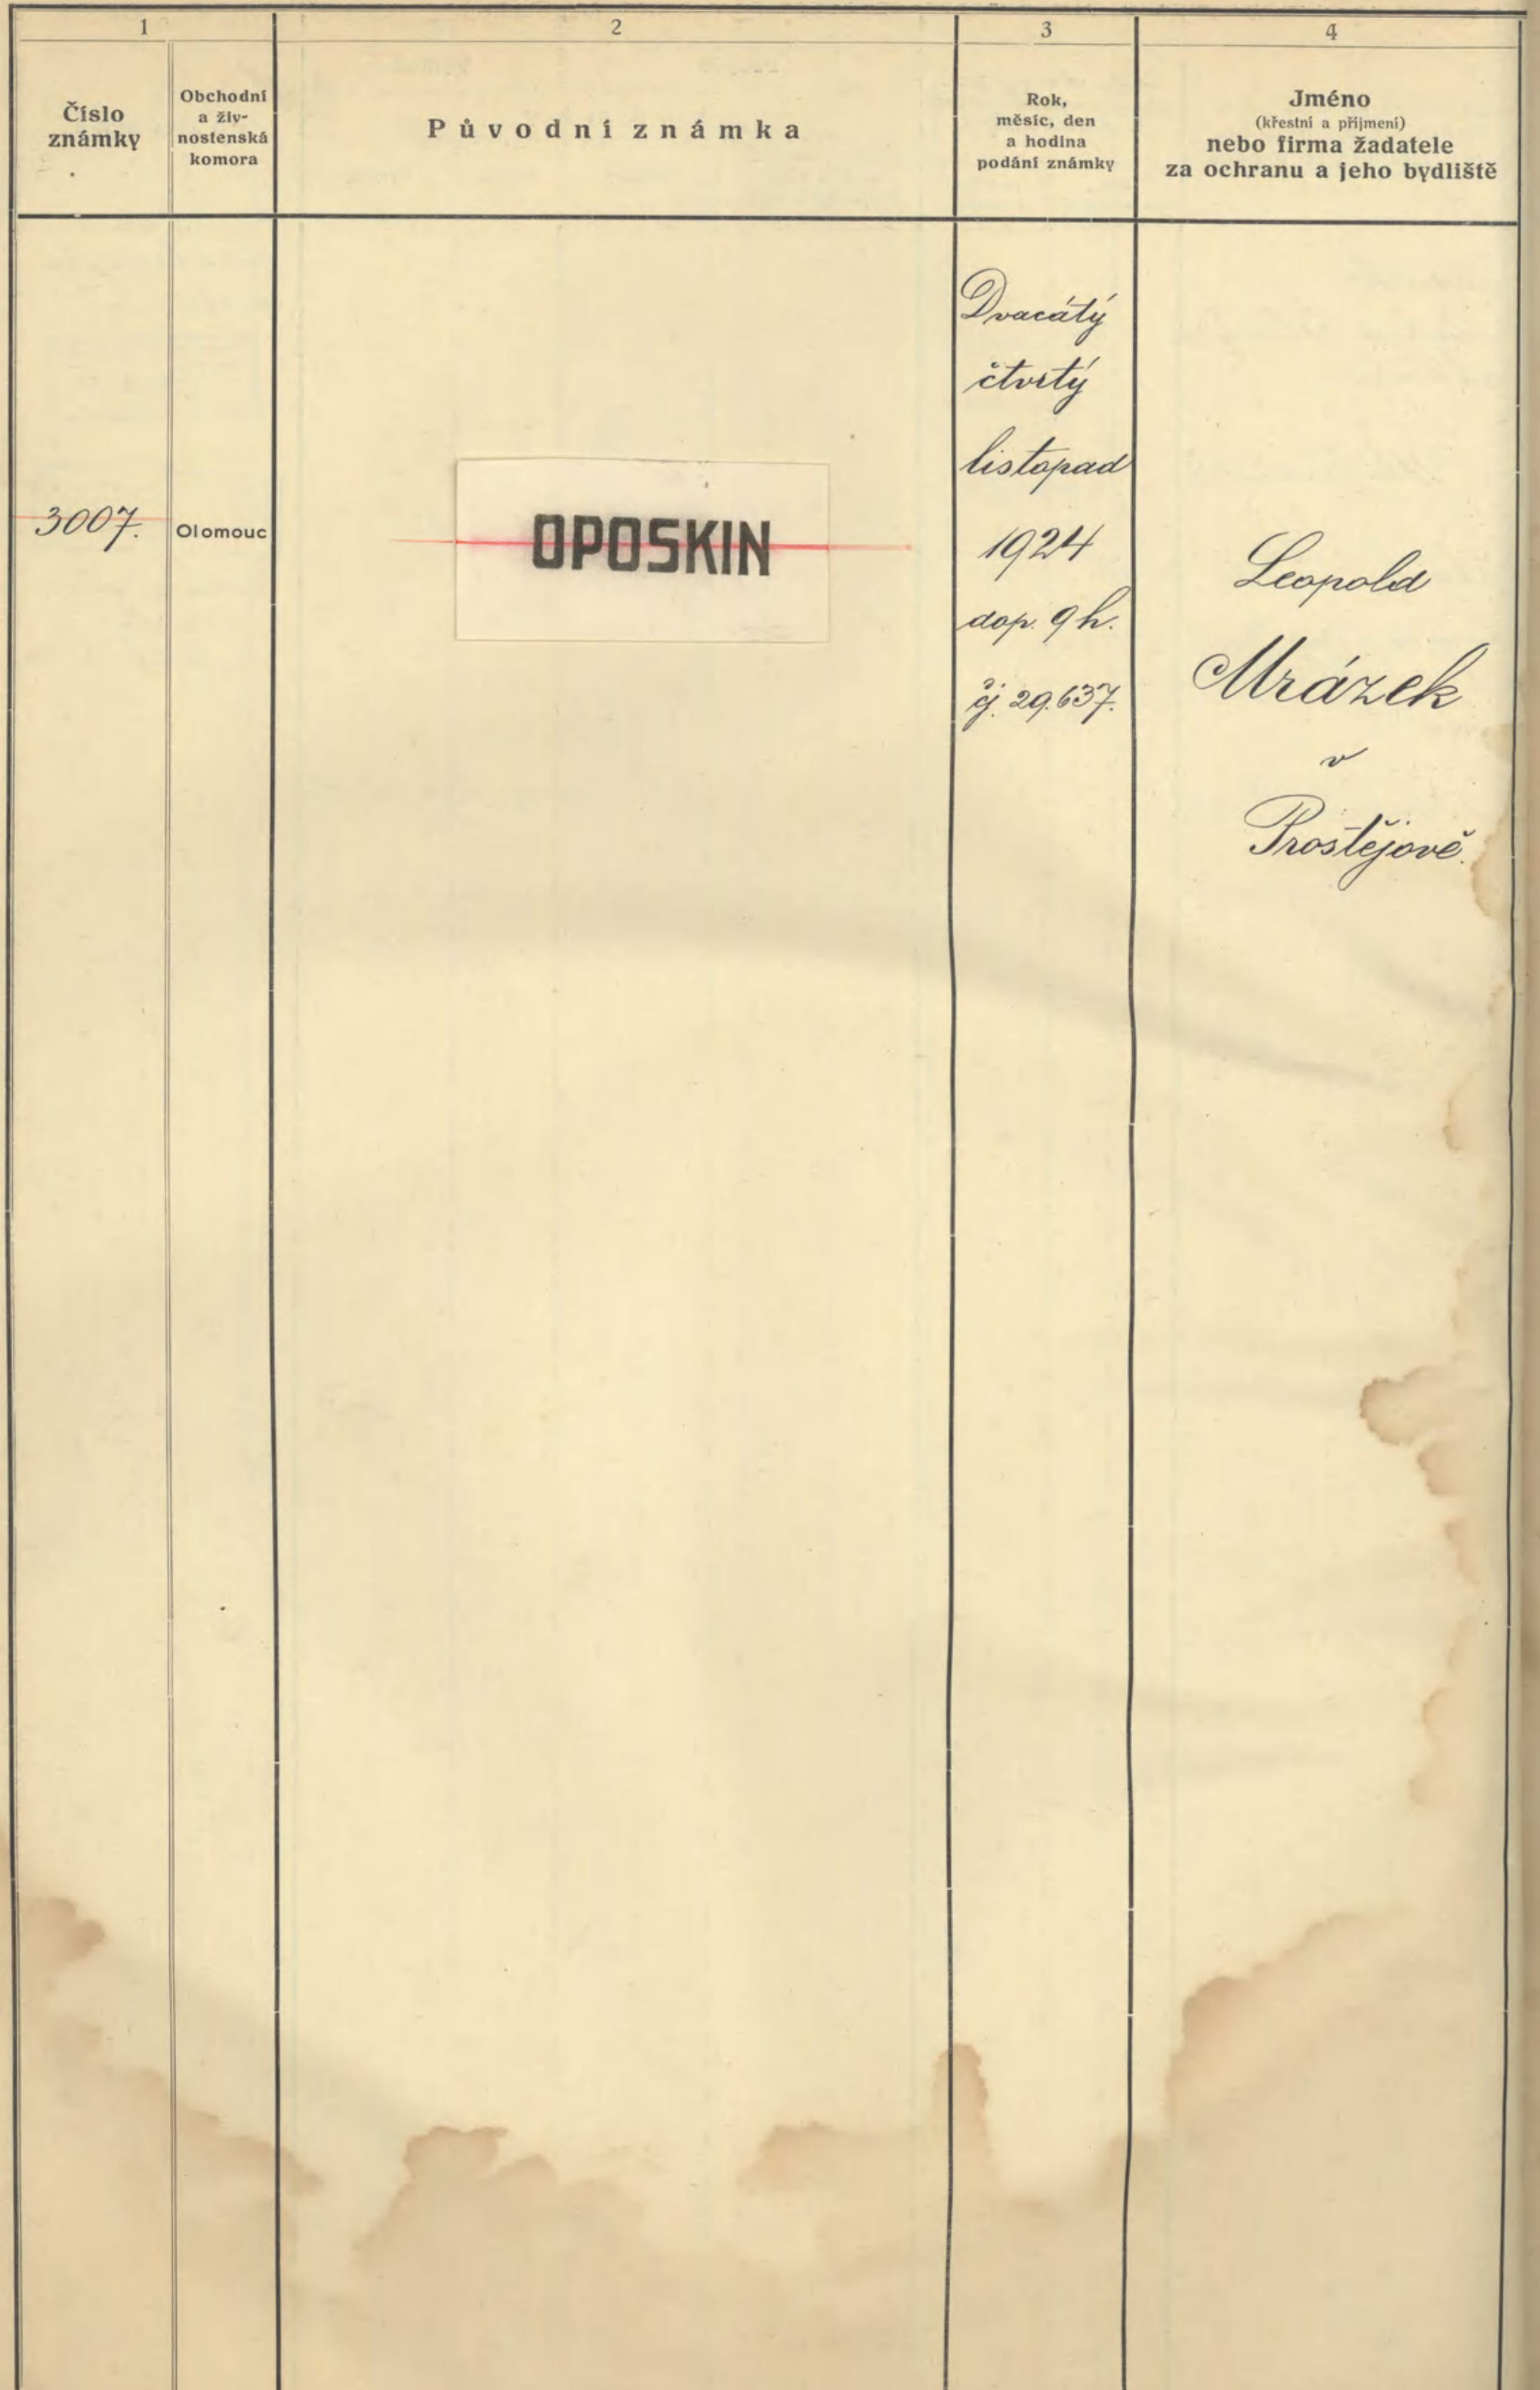 1
2
3
4
Číslo
známky
Obchodní
a živ-
nostenská
komora
Původní známka
Rok,
měsíc, den
a hodina
podání známky
Jméno
(křestní a příjmení)
nebo firma žadatele
za ochranu a jeho bydliště
3007.
Olomouc
OPOSKIN
Dvacátý
čtvrtý
listopad
1924
dop. 9 h.
čj. 29.637.
Leopold
Mrázek
v
Prostějově.